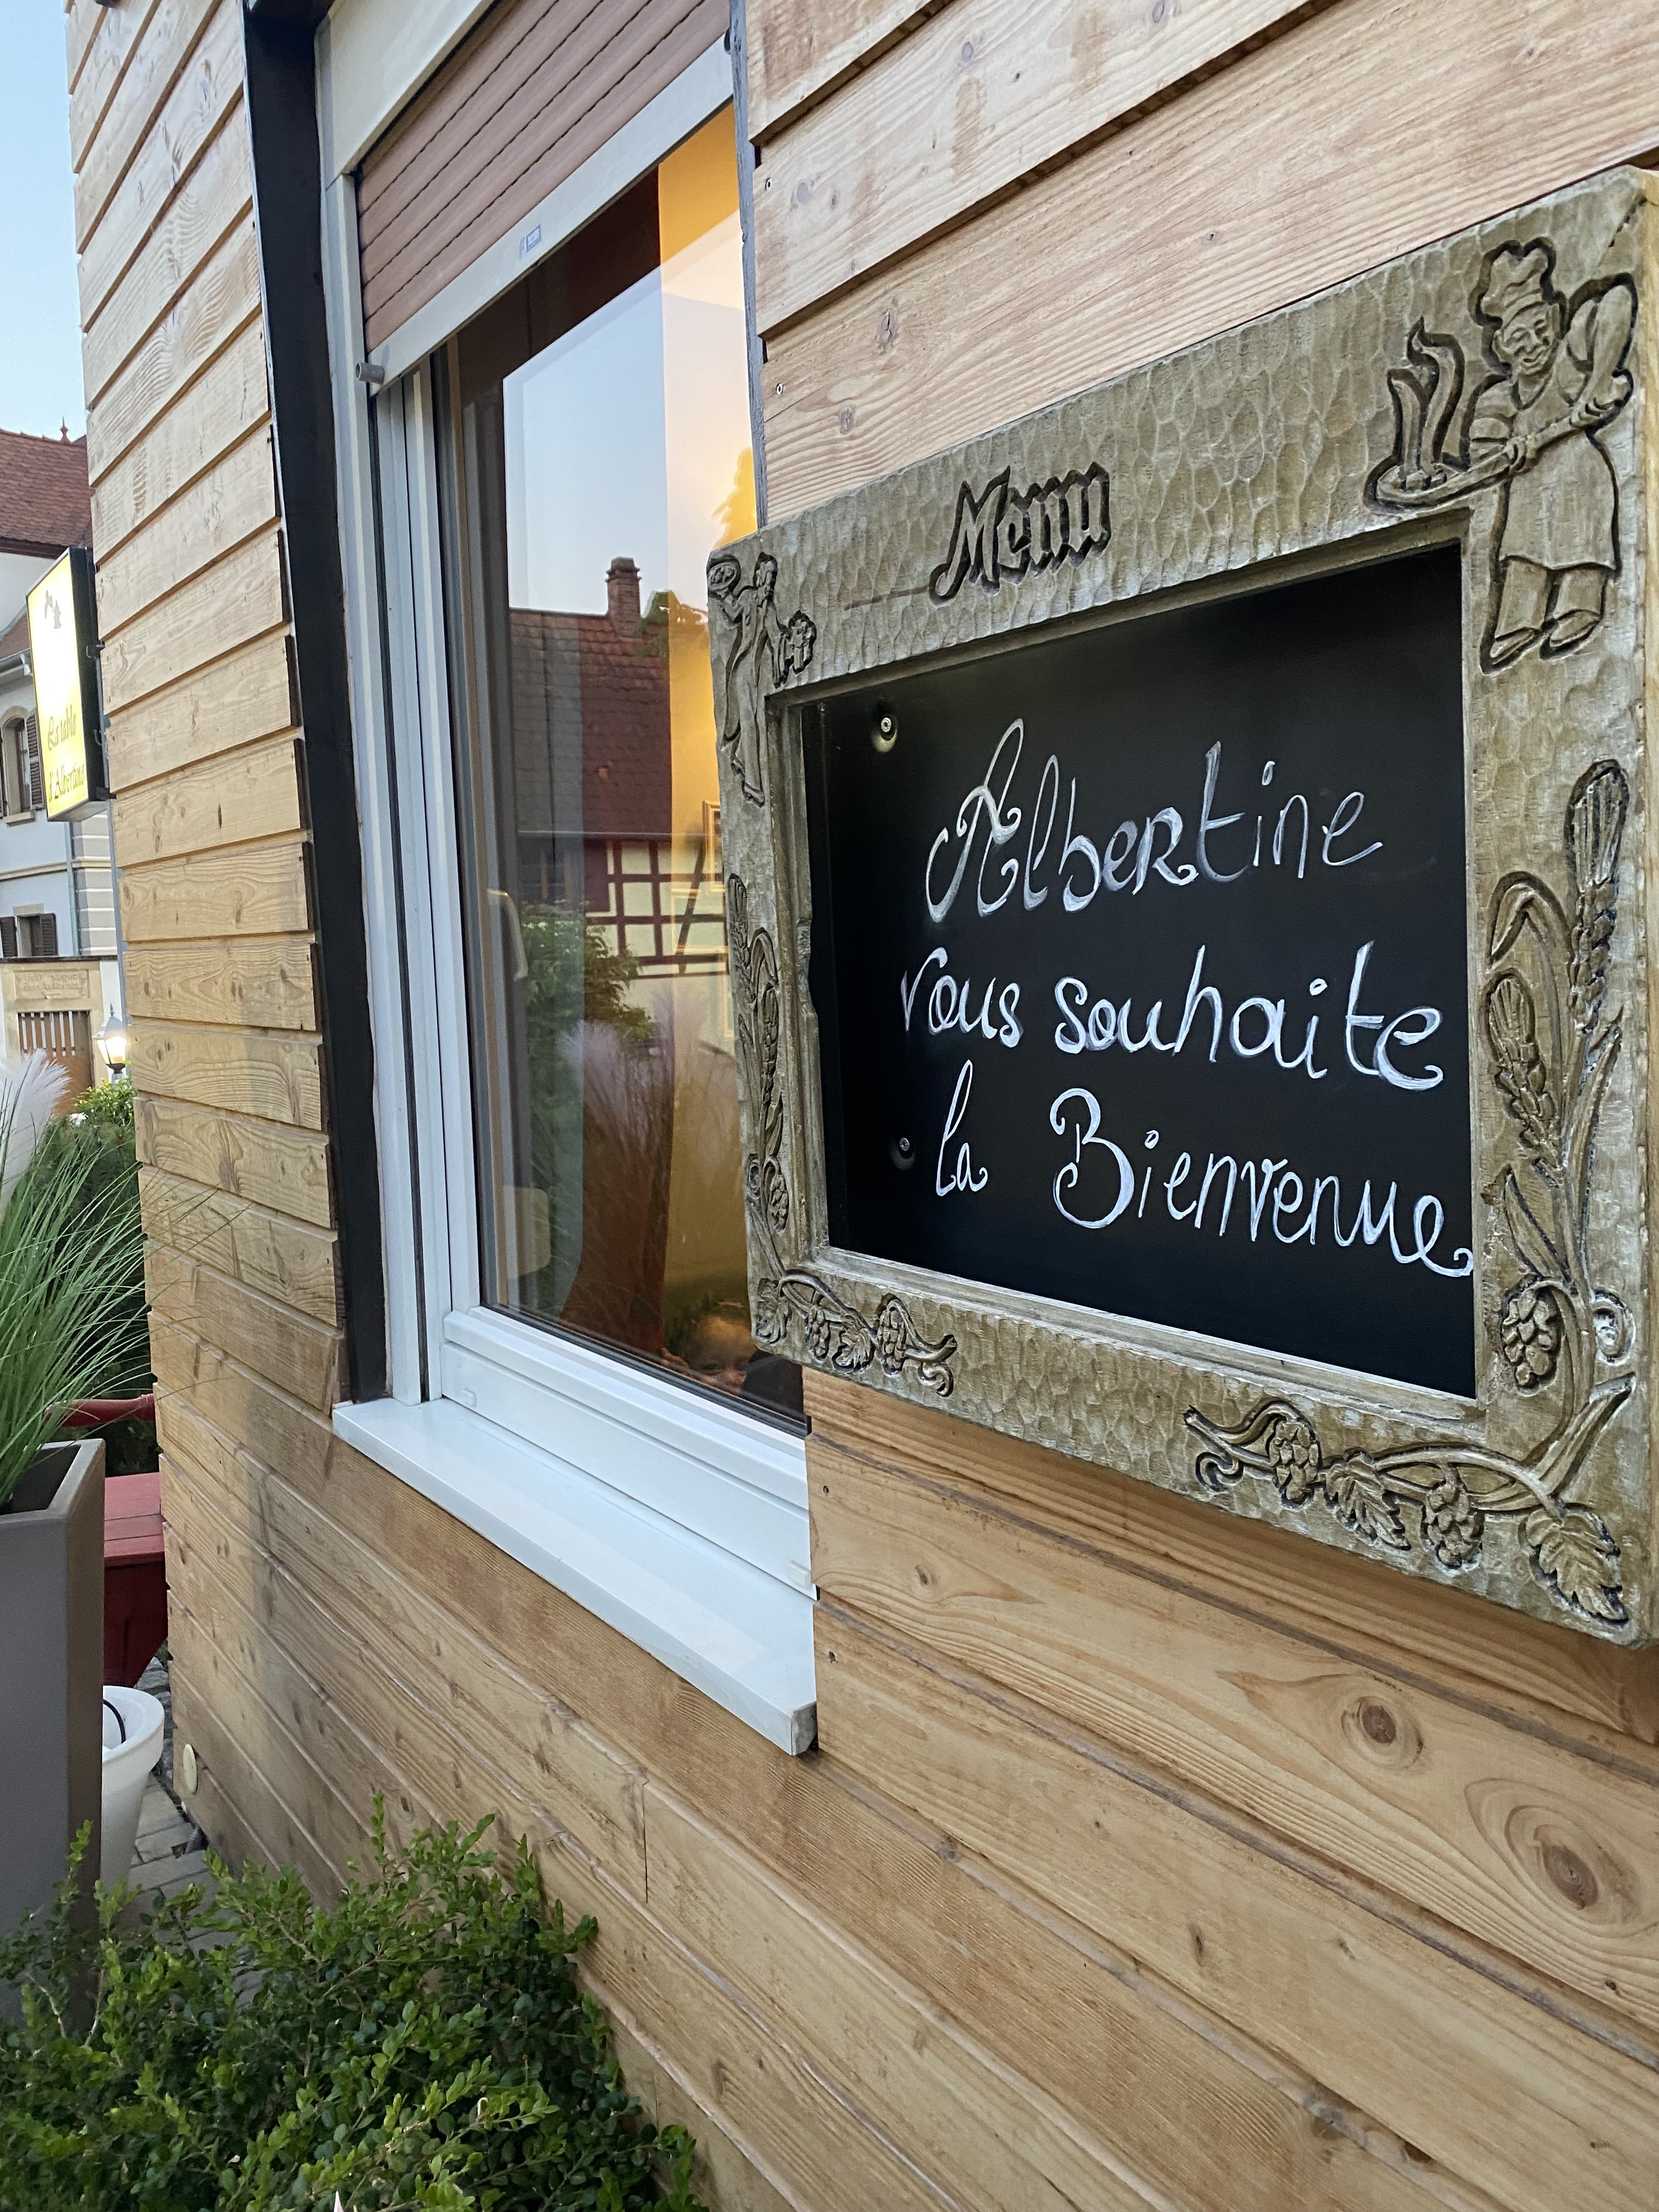 Menu
Albertine
vous souhaite
la Bienvenue
La table
d'Albertine